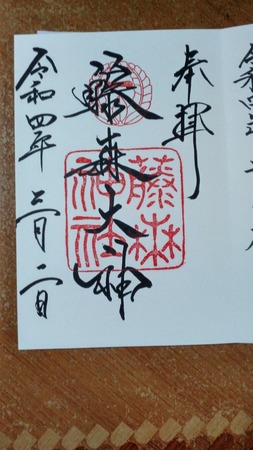 奉拝
藤森大神
藤森
神社
令和四年二月二日